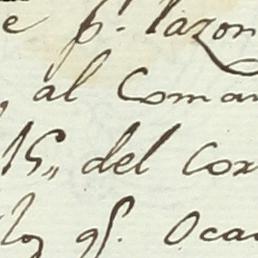 e p.r razon
al Coman
15,, del Cor
los qs. Ocas